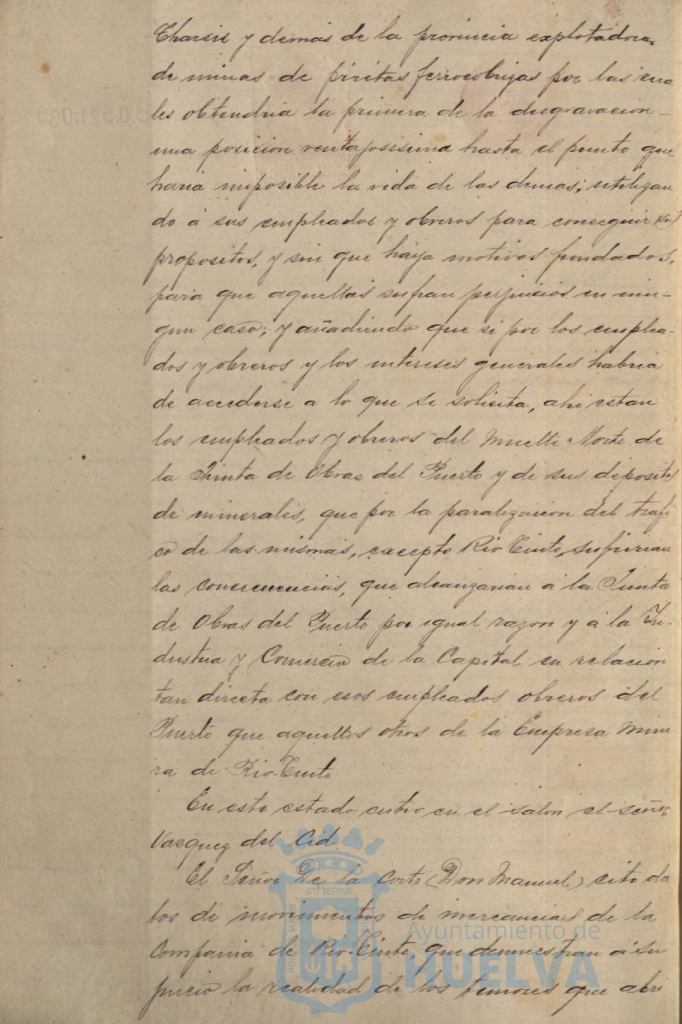 Tharsis y demás de la provincia explotadoras
de minas de piritas ferrocobrizas por las cua
les obtendria la primera de la desgravacion
una posicion ventajosisima hasta el punto que
haria imposible la vida de las demas; utilizan
do á sus empleados y obreros para conseguir sus
propositos, y sin que haya motivos fundados,
para que aquellas sufran perjuicios en nin-
gun caso; y añadiendo que si por los emplea-
dos y obreros y los intereses generales habria
de accederse a lo que se solicita, ahi estan
los empleados y obreros del Muelle Norte de
la Junta de Obras del Puerto y de sus depositos
de minerales, que por la paralizacion del trafi
co de las mismas, excepto Rio Tinto, sufririan
las consecuencias, que alcanzarian á la Junta
de Obras del Puerto por igual razon y á la In-
dustria y Comercio de la Capital en relacion
tan directa con esos empleados obreros del
Puerto que aquellos otros de la Empresa mine
ra de Rio-Tinto
En este estado entro en el salon el señor
Vazquez del Cid
El Señor De la Corte (Don Manuel) cito da
tos de movimientos de mercancias de la
Compañia de Rio-Tinto, que demuestran á su
juicio la realidad de los temores que abri
Ayuntamiento de
HUELVA